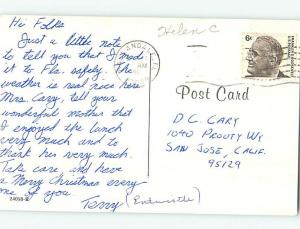 Hi Folks
Just a little note
to tell you that I made
it to Fla. safely. The
weather is real nice here.
Mrs. Cary, tell your
wonderful mother that
I enjoyed the lunch
very much and to
thank her very much.
Take care and have
a Merry Christmas every
one of you
Terry (Entwistle)
24098-B
Helen C
AM
6¢
Post Card
D.C. CARY
1090 PROUTY WY
SAN JOSE, CALIF.
95129